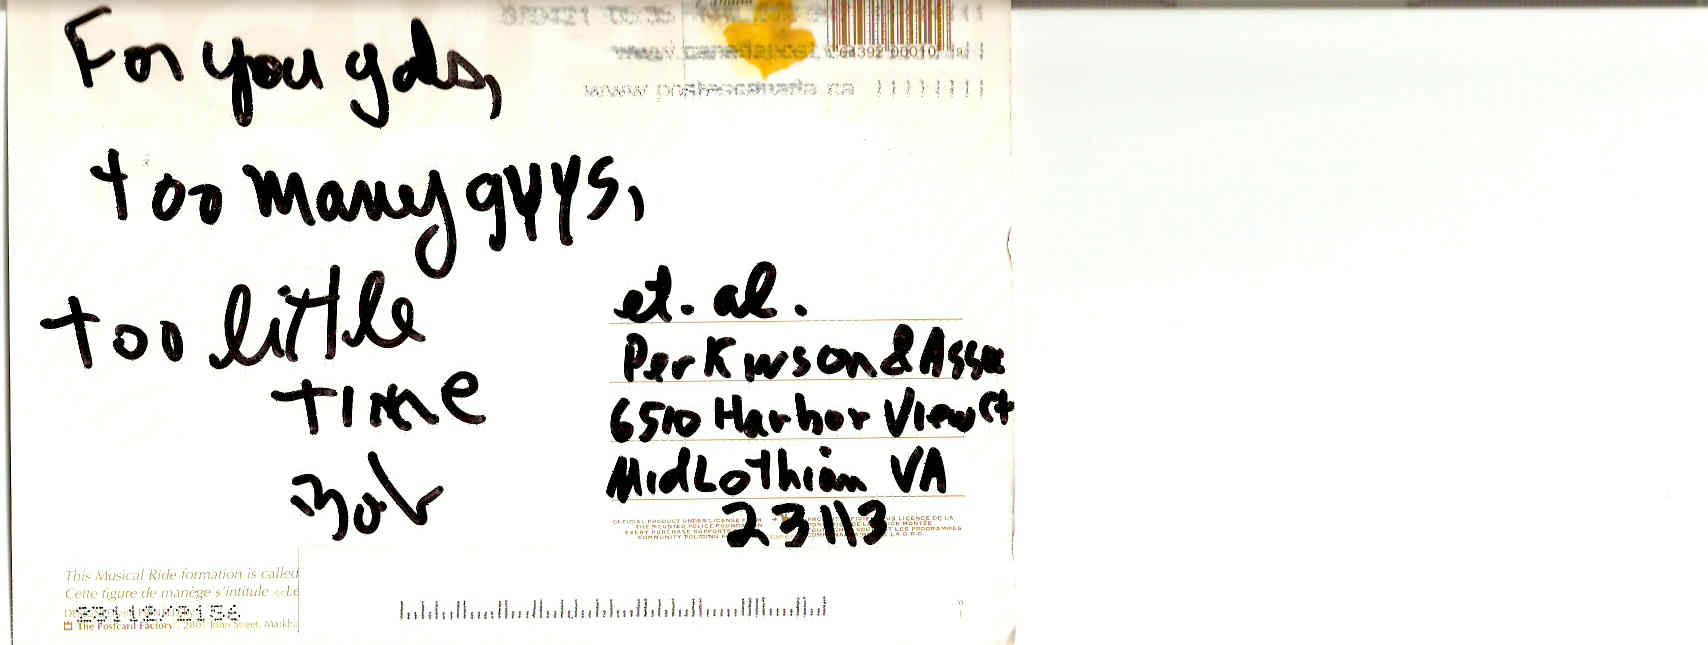 For you gals,
too many guys,
too little
time
Bob
et. al.
Perkinson & Assoc
6510 Harbor View Ct
MidLothian VA
23113
www.postescanada.ca
64392 00010
OFFICIAL PRODUCT UNDER LICENSE FROM
THE MOUNTED POLICE FOUNDATION
EVERY PURCHASE SUPPORTS
COMMUNITY POLICING
This Musical Ride formation is called
Cette figure de manège s'intitule «Le
23112/2156
The Postcard Factory